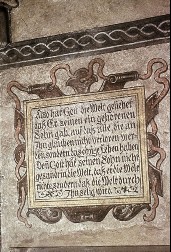 Also hat Gott die Welt geliebet
daß Er seinen eingeborenen
Sohn gab, auf daß alle die an
Ihn glauben nicht verloren wer=
den, sondern das ewige Leben haben
Den Gott hat seinen Sohn nicht
gesandt in die Welt, daß er die Welt
richte, sondern daß die Welt durch
Ihn selig wird.